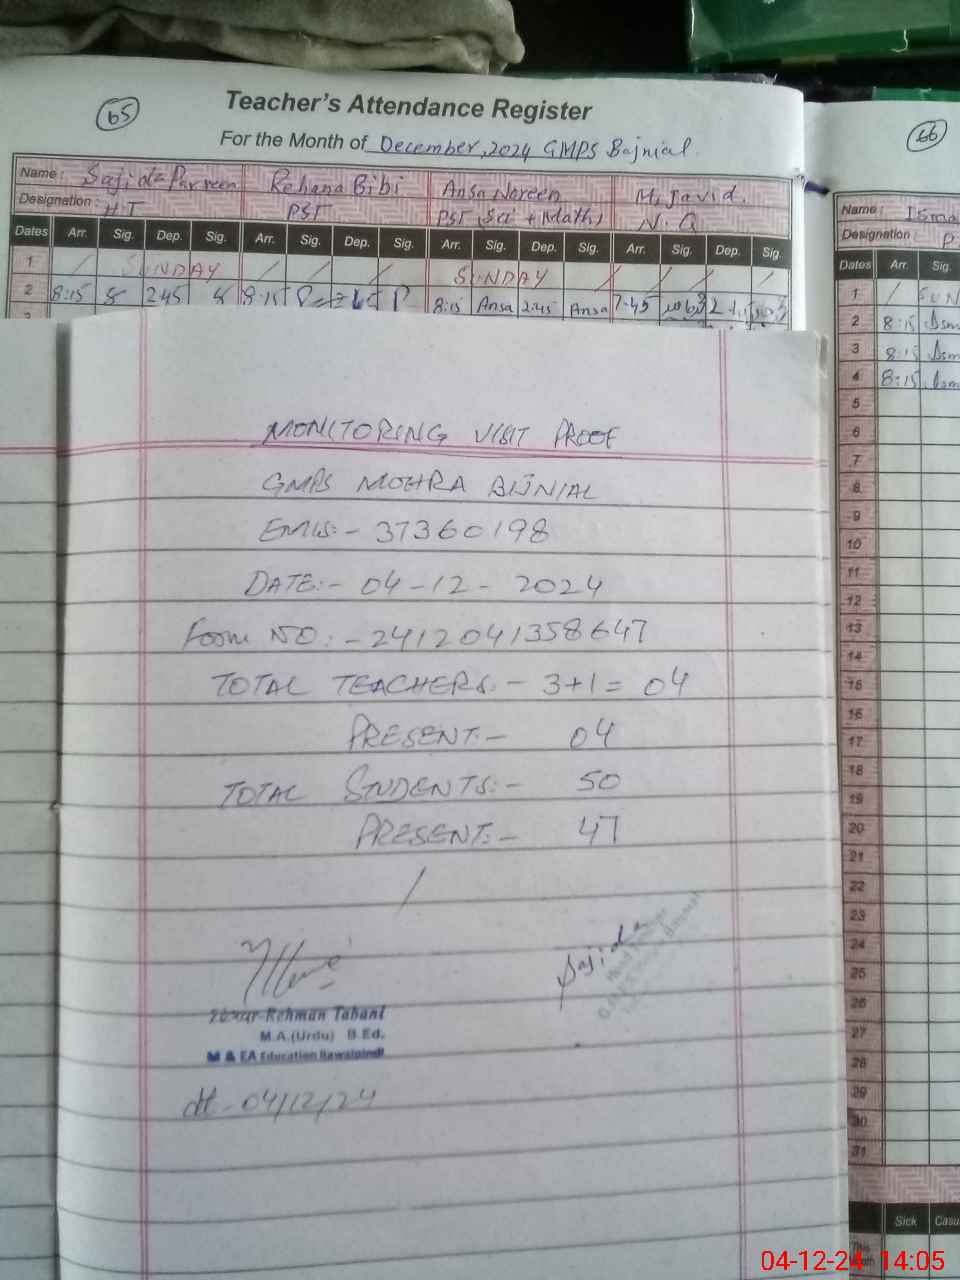 65
Teacher's Attendance Register
For the Month of December, 2024 GMPS Bajnial
Name : Sajida Parveen Rehana Bibi Ansa Noreen M. Javid.
Designation : H.T PST PST (Sci + Math) N.Q
Dates Arr. Sig. Dep. Sig. Arr. Sig. Dep. Sig. Arr. Sig. Dep. Sig. Arr. Sig. Dep. Sig.
1 / SUNDAY / / / SUNDAY / / / /
2 8:15 2:45 8:15 8:15 Ansa 2:45 Ansa 7:45
66
Name :
Designation :
Dates Arr. Sig.
1 / SUN
2 8:15
3 8:15
4 8:15
5
6
7
8
9
10
11
12
13
14
15
16
17
18
19
20
21
22
23
24
25
26
27
28
29
30
31
Sick
MONITORING VISIT PROOF
GMPS MOHRA BIJNIAL
EMIS:- 37360198
DATE:- 04-12-2024
Foom NO:- 2412041358647
TOTAL TEACHERS:- 3+1= 04
PRESENT:- 04
TOTAL STUDENTS:- 50
PRESENT:- 47
/
Sajida
Rehman Tabani
M.A.(Urdu) B.Ed.
M & EA Education Rawalpindi
dt-04/12/24
04-12-24 14:05